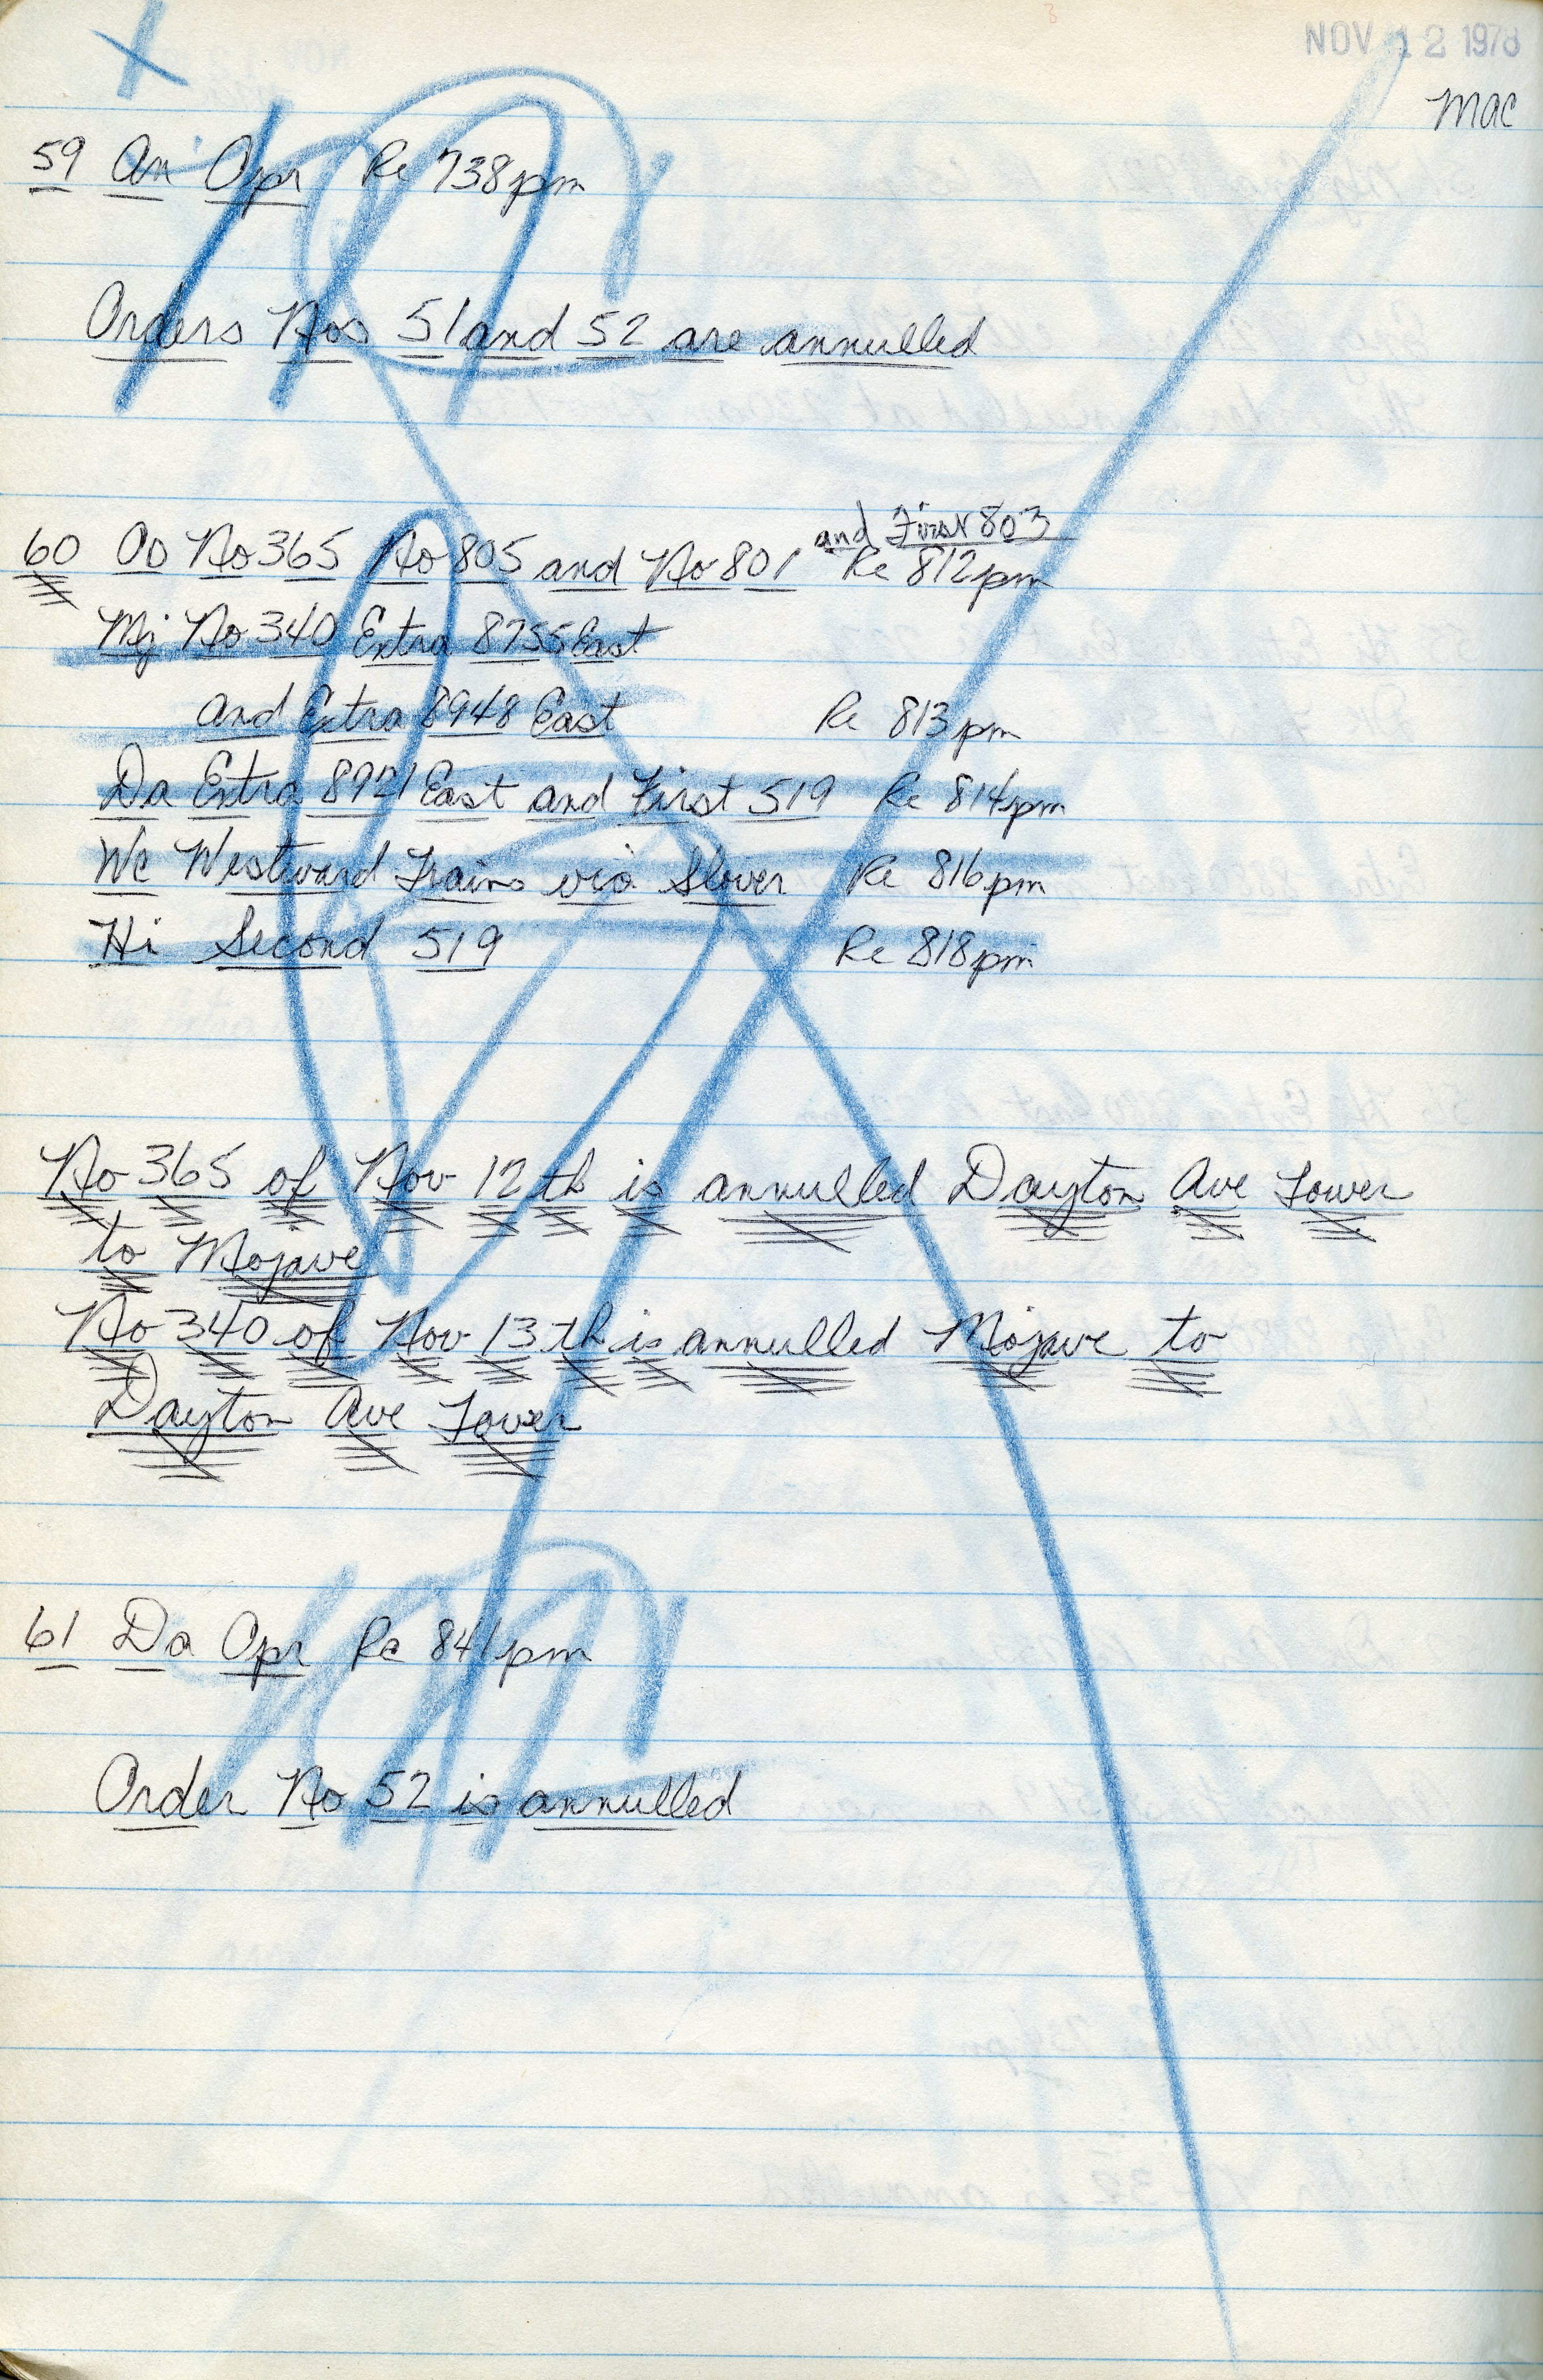 NOV 12 1978
Mac
59 An Opr Re 738pm
Orders Nos 51 and 52 are annulled
and First 803
60 Oo No 365 No 805 and No 801 Re 812pm
Mj No 340 Extra 8755 East
and Extra 8948 East Re 813pm
Da Extra 8921 East and First 519 Re 814pm
WC Westward Trains via Slover Re 816pm
Hi Second 519 Re 818pm
No 365 of Nov 12th is annulled Dayton Ave Tower
to Mojave
No 340 of Nov 13th is annulled Mojave to
Dayton Ave Tower
61 Da Opr Re 841pm
Order No 52 is annulled